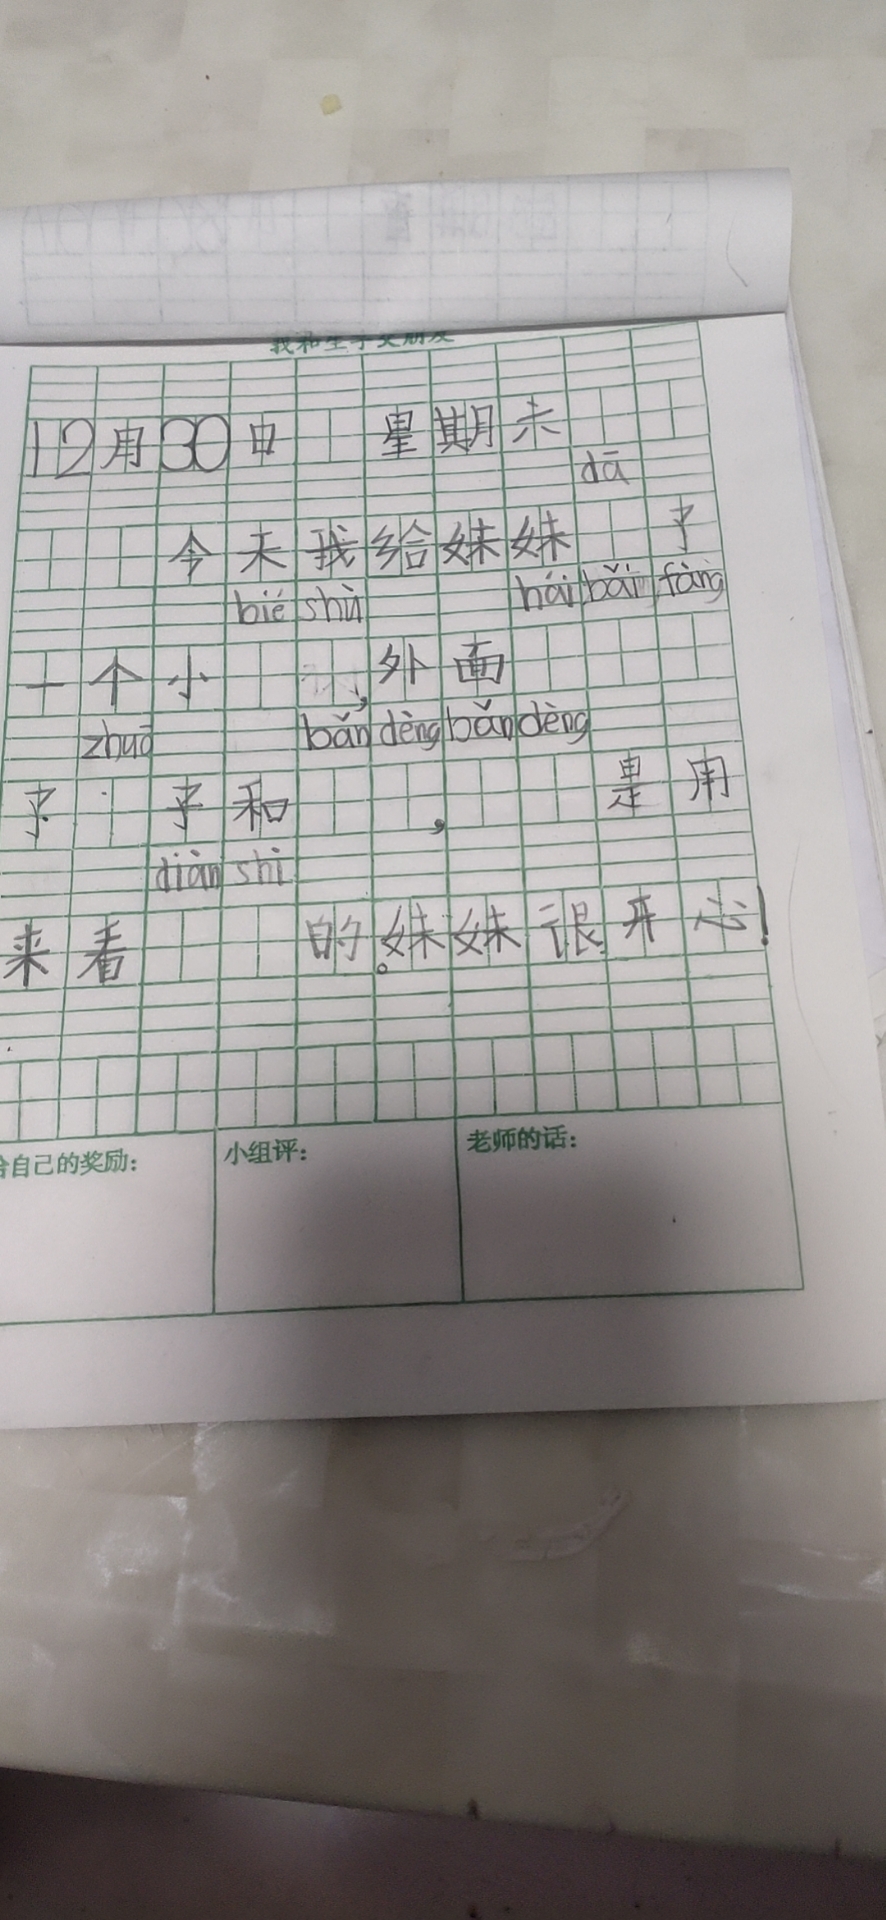 我和生字交朋友
12月30日 星期末
dā
今天我给妹妹 了
bié shù hái bǎi fàng
一个小 ,外面
zhuō bǎn dèng bǎn dèng
了 子和 , 是用
diàn shì
来看 的。妹妹很开心!
给自己的奖励:
小组评:
老师的话: